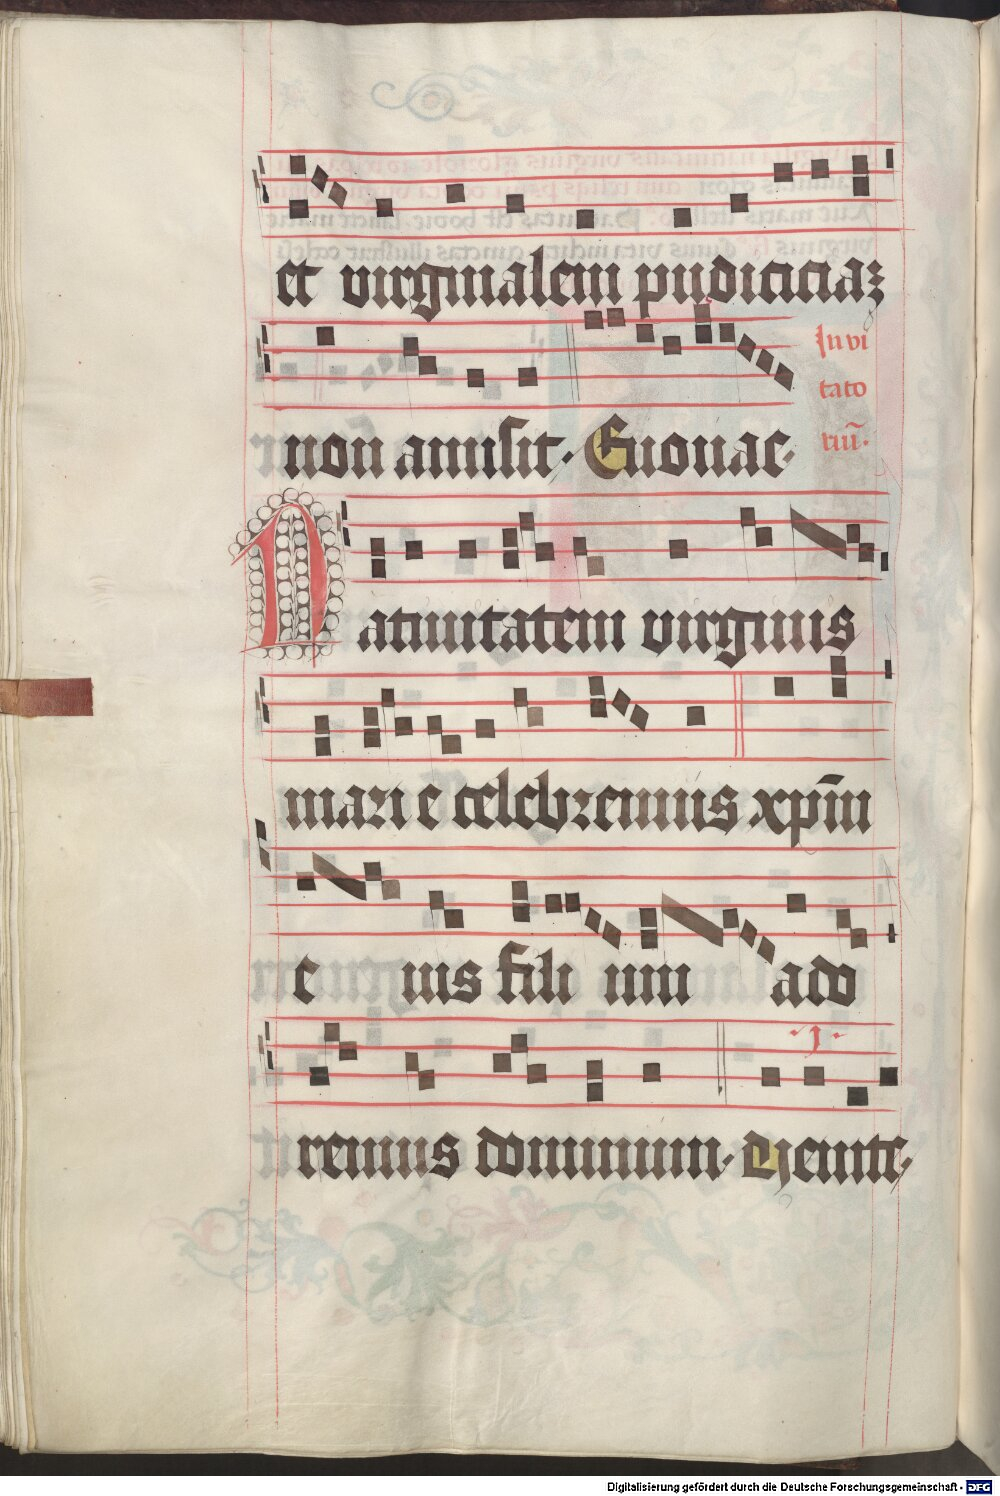 et virginalem pudiciciaz
non amisit. Euouae.
Inui
tato
riū.
Natiuitatem virginis
marie celebremus xp̄m
e ius fili um ado
remus dominum. Venite.
Digitalisierung gefördert durch die Deutsche Forschungsgemeinschaft - DFG